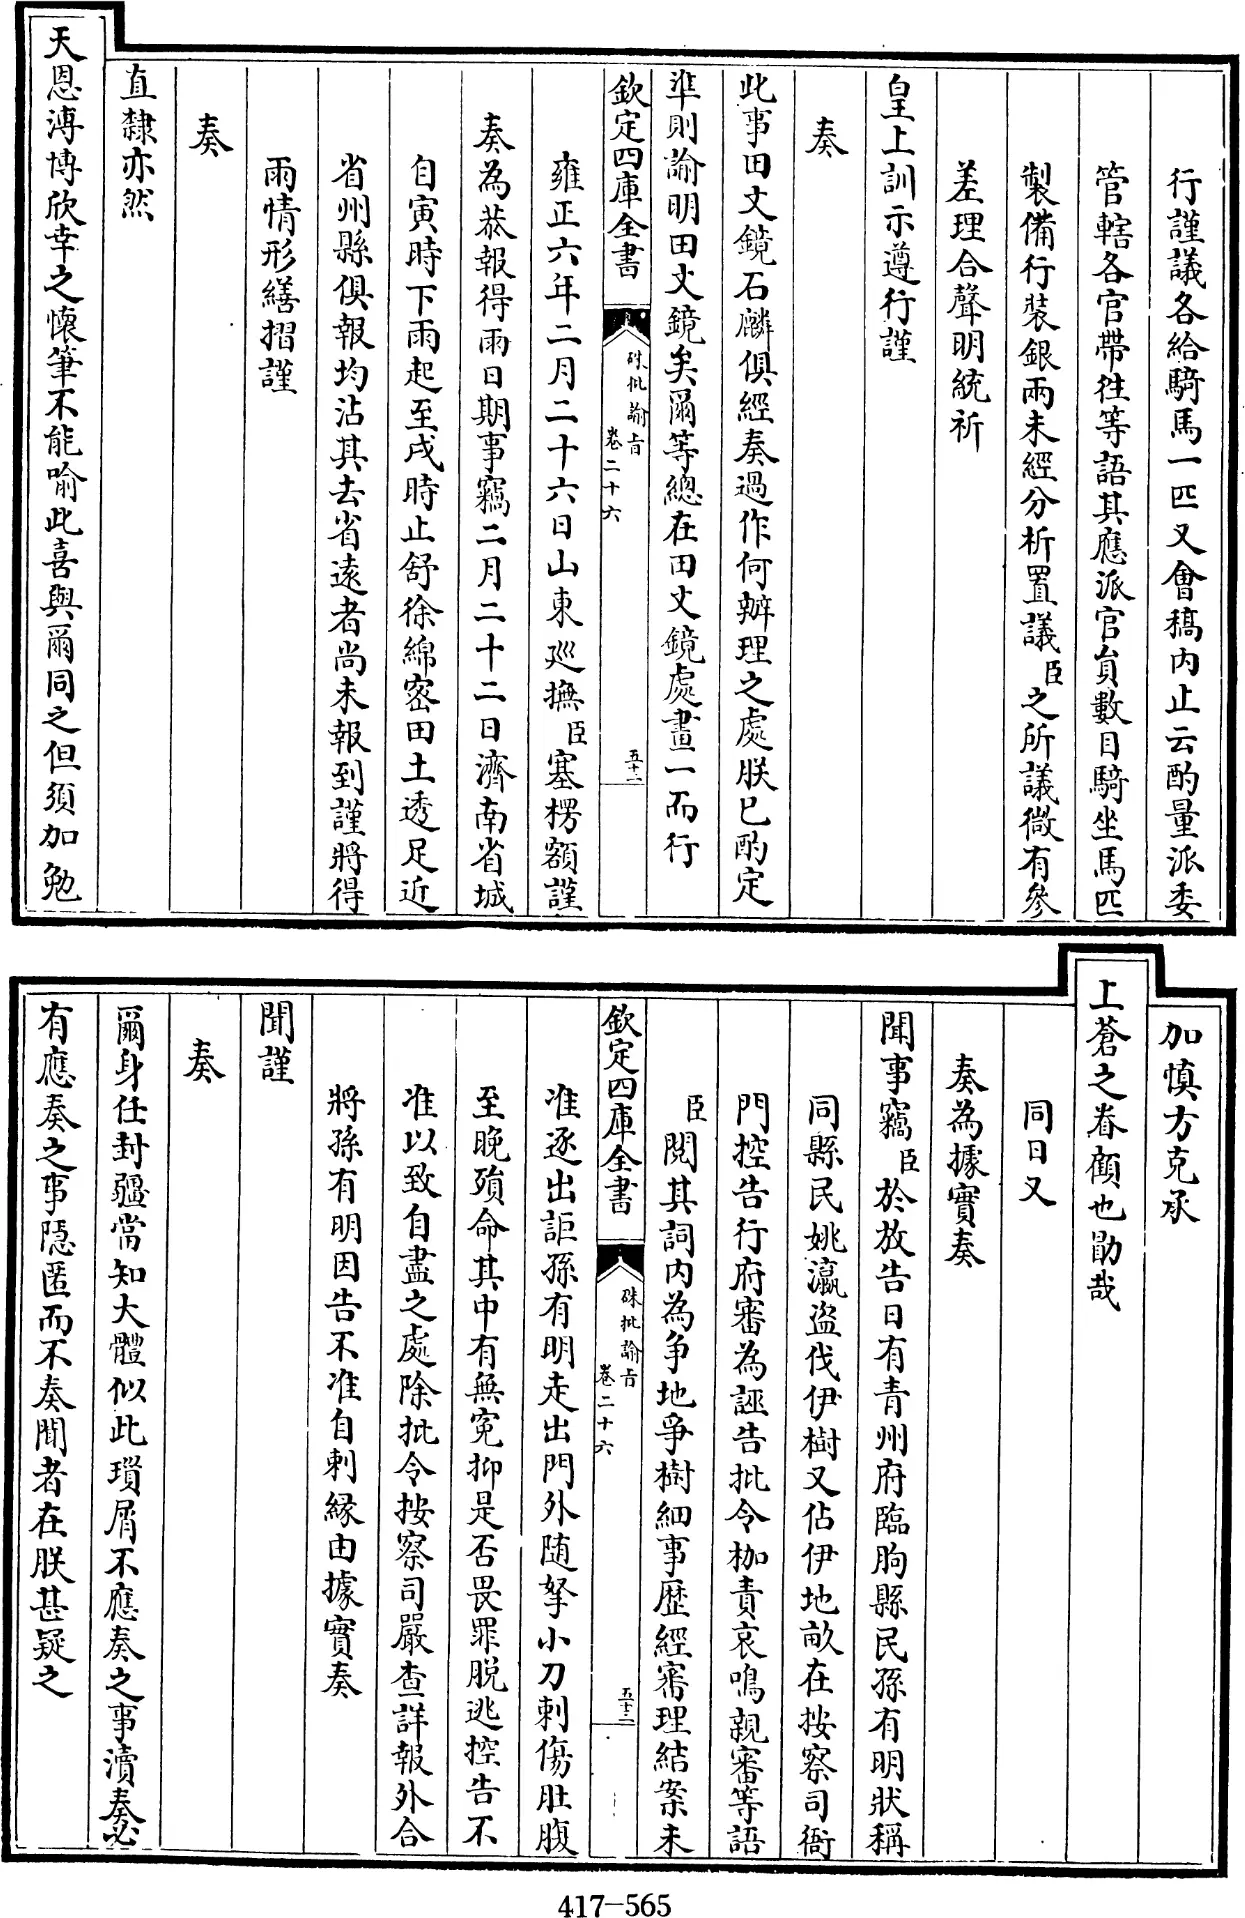 行謹議各給騎馬一匹又會稿内止云酌量派委
管轄各官帶往等語其應派官員數目騎坐馬匹
製備行裝銀兩未經分析置議臣之所議微有參
差理合聲明統祈
皇上訓示遵行謹
奏
此事田文鏡石麟俱經奏過作何辦理之處朕已酌定
準則諭明田文鏡矣爾等總在田文鏡處畫一而行
欽定四庫全書
硃批諭旨
卷二十六
五十二
雍正六年二月二十六日山東廵撫臣塞楞額謹
奏為恭報得雨日期事竊二月二十二日濟南省城
自寅時下雨起至戌時止舒徐綿密田土透足近
省州縣俱報均沾其去省逺者尚未報到謹將得
雨情形繕摺謹
奏
直隸亦然
天恩溥博欣幸之懷筆不能喻此喜與爾同之但須加勉
加慎方克承
上蒼之眷顧也勖哉
同日又
奏為據實奏
聞事竊臣於放告日有青州府臨朐縣民孫有明狀稱
同縣民姚瀛盜伐伊樹又佔伊地畝在按察司衙
門控告行府審為誣告批令枷責哀鳴親審等語
臣閱其詞内為爭地爭樹細事歴經審理結案未
准逐出詎孫有明走出門外随拏小刀刺傷肚腹
至晩殞命其中有無寃抑是否畏罪脱逃控告不
准以致自盡之處除批令按察司嚴查詳報外合
將孫有明因告不准自刺縁由據實奏
聞謹
奏
爾身任封疆當知大體似此瑣屑不應奏之事瀆奏必
有應奏之事隱匿而不奏聞者在朕甚疑之
欽定四庫全書
硃批諭旨
卷二十六
五十三
417-565